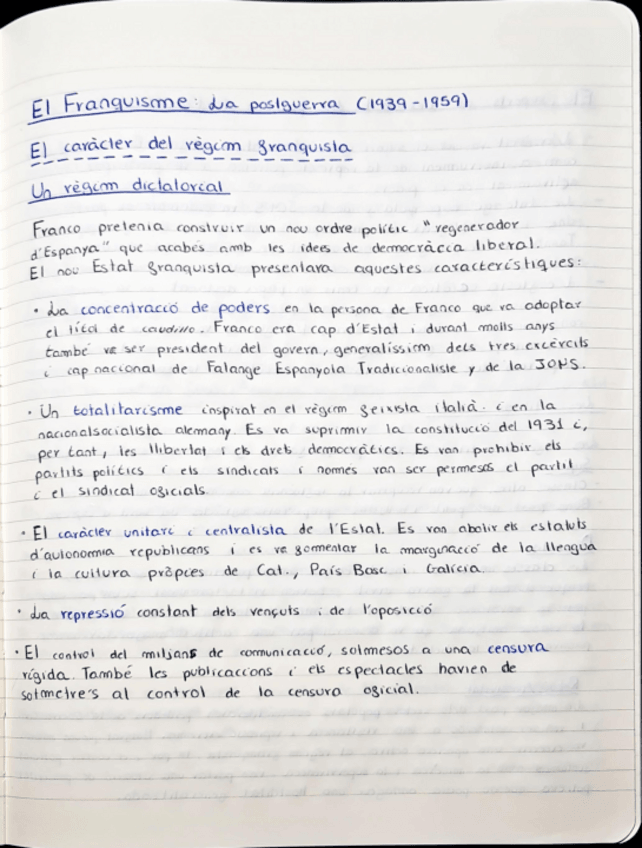 El Franquisme: La postguerra (1939-1959)
El caràcter del règim franquista
Un règim dictatorial
Franco pretenia construir un nou ordre polític "regenerador
d'Espanya" que acabés amb les idees de democràcia liberal.
El nou Estat franquista presentara aquestes característiques:
· La concentració de poders en la persona de Franco que va adoptar
el títol de caudillo. Franco era cap d'Estat i durant molts anys
també va ser president del govern, generalíssim dels tres exèrcits
i cap nacional de Falange Espanyola Tradicionaliste y de la JONS.
· Un totalitarisme inspirat en el règim feixista italià i en la
nacionalsocialista alemany. Es va suprimir la constitució del 1931 i,
per tant, les llibertat i els drets democràtics. Es van prohibir els
partits polítics i els sindicats i nomes van ser permesos el partit
i el sindical oficials.
· El caràcter unitari i centralista de l'Estat. Es van abolir els estatuts
d'autonomia republicans i es va fomentar la marginació de la llengua
i la cultura pròpies de Cat., País Basc i Galícia.
· La repressió constant dels vençuts i de l'oposició
· El control del mitjans de comunicació, sotmesos a una censura
rígida. També les publicacions i els espectacles havien de
sotmetre's al control de la censura oficial.